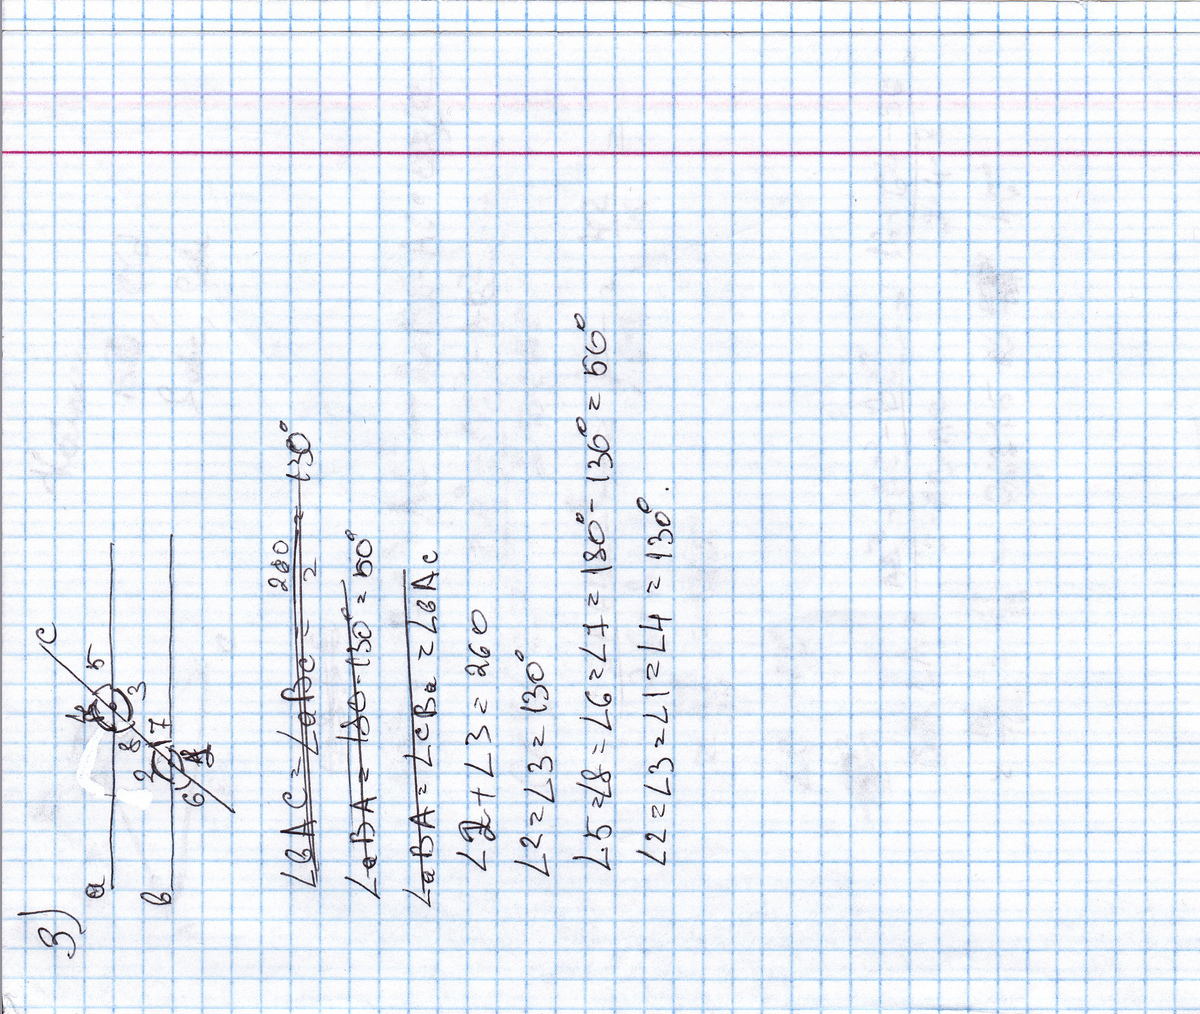 3)
a
b
c
4 5
8 3
2 7
6 1
∠bAC = ∠aBC = 260/2 = 130°
∠aBA = 180 - 130° = 50°
∠aBA = ∠CBa = ∠bAc
∠2 + ∠3 = 260
∠2 = ∠3 = 130°
∠5 = ∠8 = ∠6 = ∠7 = 180° - 130° = 50°
∠2 = ∠3 = ∠1 = ∠4 = 130°.